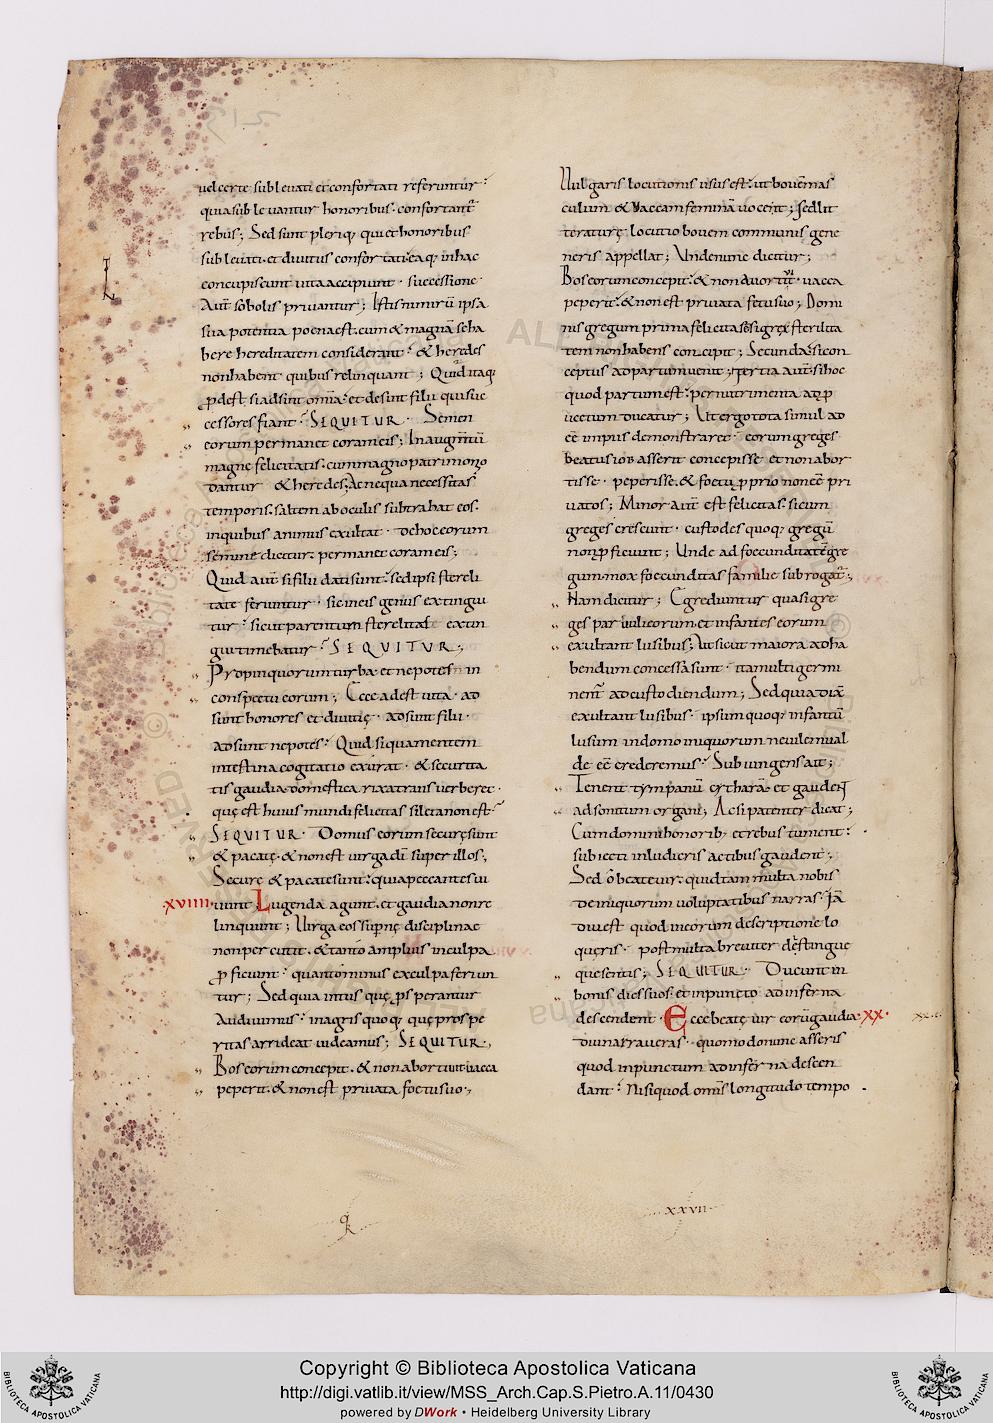 uel certe subleuati et confortati referuntur.
quia subleuantur honoribus. confortant̄
rebus; Sed sunt pleriq; qui et honoribus
subleuati. et diuitiis confortati. ea q; in hac
concupiscunt uita accipiunt. successione
aut̄ sobolis priuantur; Istis nimirū ipsa
sua potentia poena est. cum & magnā se ha
bere hereditatem considerant. & heredes
non habent quibus relinquant; Quid itaq;
ꝓdest. si adsint om̄ia. et desint filii qui suc
cessores fiant. SEQUITUR. Semen
eorum permanet coram eis; In augm̄tū
magnę felicitatis. cum magno patrimonio
dantur & heredes; Ac ne qua necessitas
temporis. saltem ab oculis subtrahat eos.
in quibus animus exultat. de hoc eorum
semine dicitur. permanet coram eis;
Quid aut̄ si filii dati sunt. sed ipsi sterili
tate feriuntur. sic in eis genus extingui
tur. sicut parentum sterelitate extin
gui timebatur. SEQUITUR;
Propinquorum turba. et nepotes in
conspectu eorum; Ecce adest uita. ad
sunt honores et diuitię. adsunt filii.
adsunt nepotes. Quid si quam mentem
intestina cogitatio exurat. & securita
tis gaudia domestica rixa transuerberet.
quę est huius mundi felicitas si leta non est.
SEQUITUR. Domus eorum securę sunt
& pacatę. & non est uirga dī super illos;
Securę & pacate sunt. quia peccantes ui
.xviiii. uunt; Lugenda agunt. et gaudia non re
linquunt; Uirga eos supnę disciplinae
non percutit. & tanto amplius in culpa
ꝓficiunt. quanto minus ex culpa feriun
tur; Sed quia intus quę ꝓsperantur
audiuimus. in agris quoq; quę prospe
ritas arrideat uideamus; SEQUITUR;
Bos eorum concepit. & non abortiuit. uacca
peperit. & non est priuata foetu suo;
Uulgaris locutionis usus est. ut bouem mas
culum & uaccam feminā uocent; sed lit
teraturę locutio bouem communis gene
neris appellat; Unde nunc dicitur;
Bos eorum concepit. & non abortiuit. uacca
peperit. & non est priuata fetu suo; Domi
nis gregum prima felicitas est. si grex sterilita
tem non habens concipit; Secunda. si con
ceptus ad partum uenit; Tertia aut̄. si hoc
quod partum est. per nutrimenta ad ꝓ
uectum ducatur; Ut ergo tota simul ad
eē impiis demonstraret. eorum greges
beatus iob asserit concepisse et non abor
tisse. peperisse. & foetu ꝓprio non eē pri
uatos; Minor aut̄ est felicitas. si cum
greges crescunt. custodes quoq; gregū
non ꝓficiunt; Unde ad foecunditatē gre
gum. mox foecunditas familię subrogat̄;
Nam dicitur; Egrediuntur quasi gre
ges paruuli eorum. et infantes eorum
exultant lusibus; Ut sicut maiora ad ha
bendum concessa sunt. ita multi germi
nent ad custodiendum; Sed quia dix̄
exultant lusibus. ipsum quoq; infantū
lusum in domo iniquorum ne uilem ual
de eē crederemus. Subiungens ait;
Tenent tympanū & cytharā. et gaudent
ad sonitum organi; Ac si patenter dicat;
Cum domini honorib; et rebus tument.
subiecti in ludicris actibus gaudent;
Sed o beate uir. quid tam multa nobis
de iniquorum uoluptatibus narras. Iā
diu est quod in eorum descriptione lo
queris. post multa breuiter distingue
que sentis; SEQUITUR. Ducunt in
bonis dies suos. et in puncto ad inferna
descendent. Ecce beate uir eorū gaudia .xx.
diu narraueras. quomodo nunc asseris
quod in punctum ad inferna descen
dant. Nisi quod om̄is longitudo tempo
xxvii
Copyright © Biblioteca Apostolica Vaticana
http://digi.vatlib.it/view/MSS_Arch.Cap.S.Pietro.A.11/0430
powered by DWork • Heidelberg University Library
BIBLIOTECA APOSTOLICA VATICANA
BIBLIOTECA APOSTOLICA VATICANA